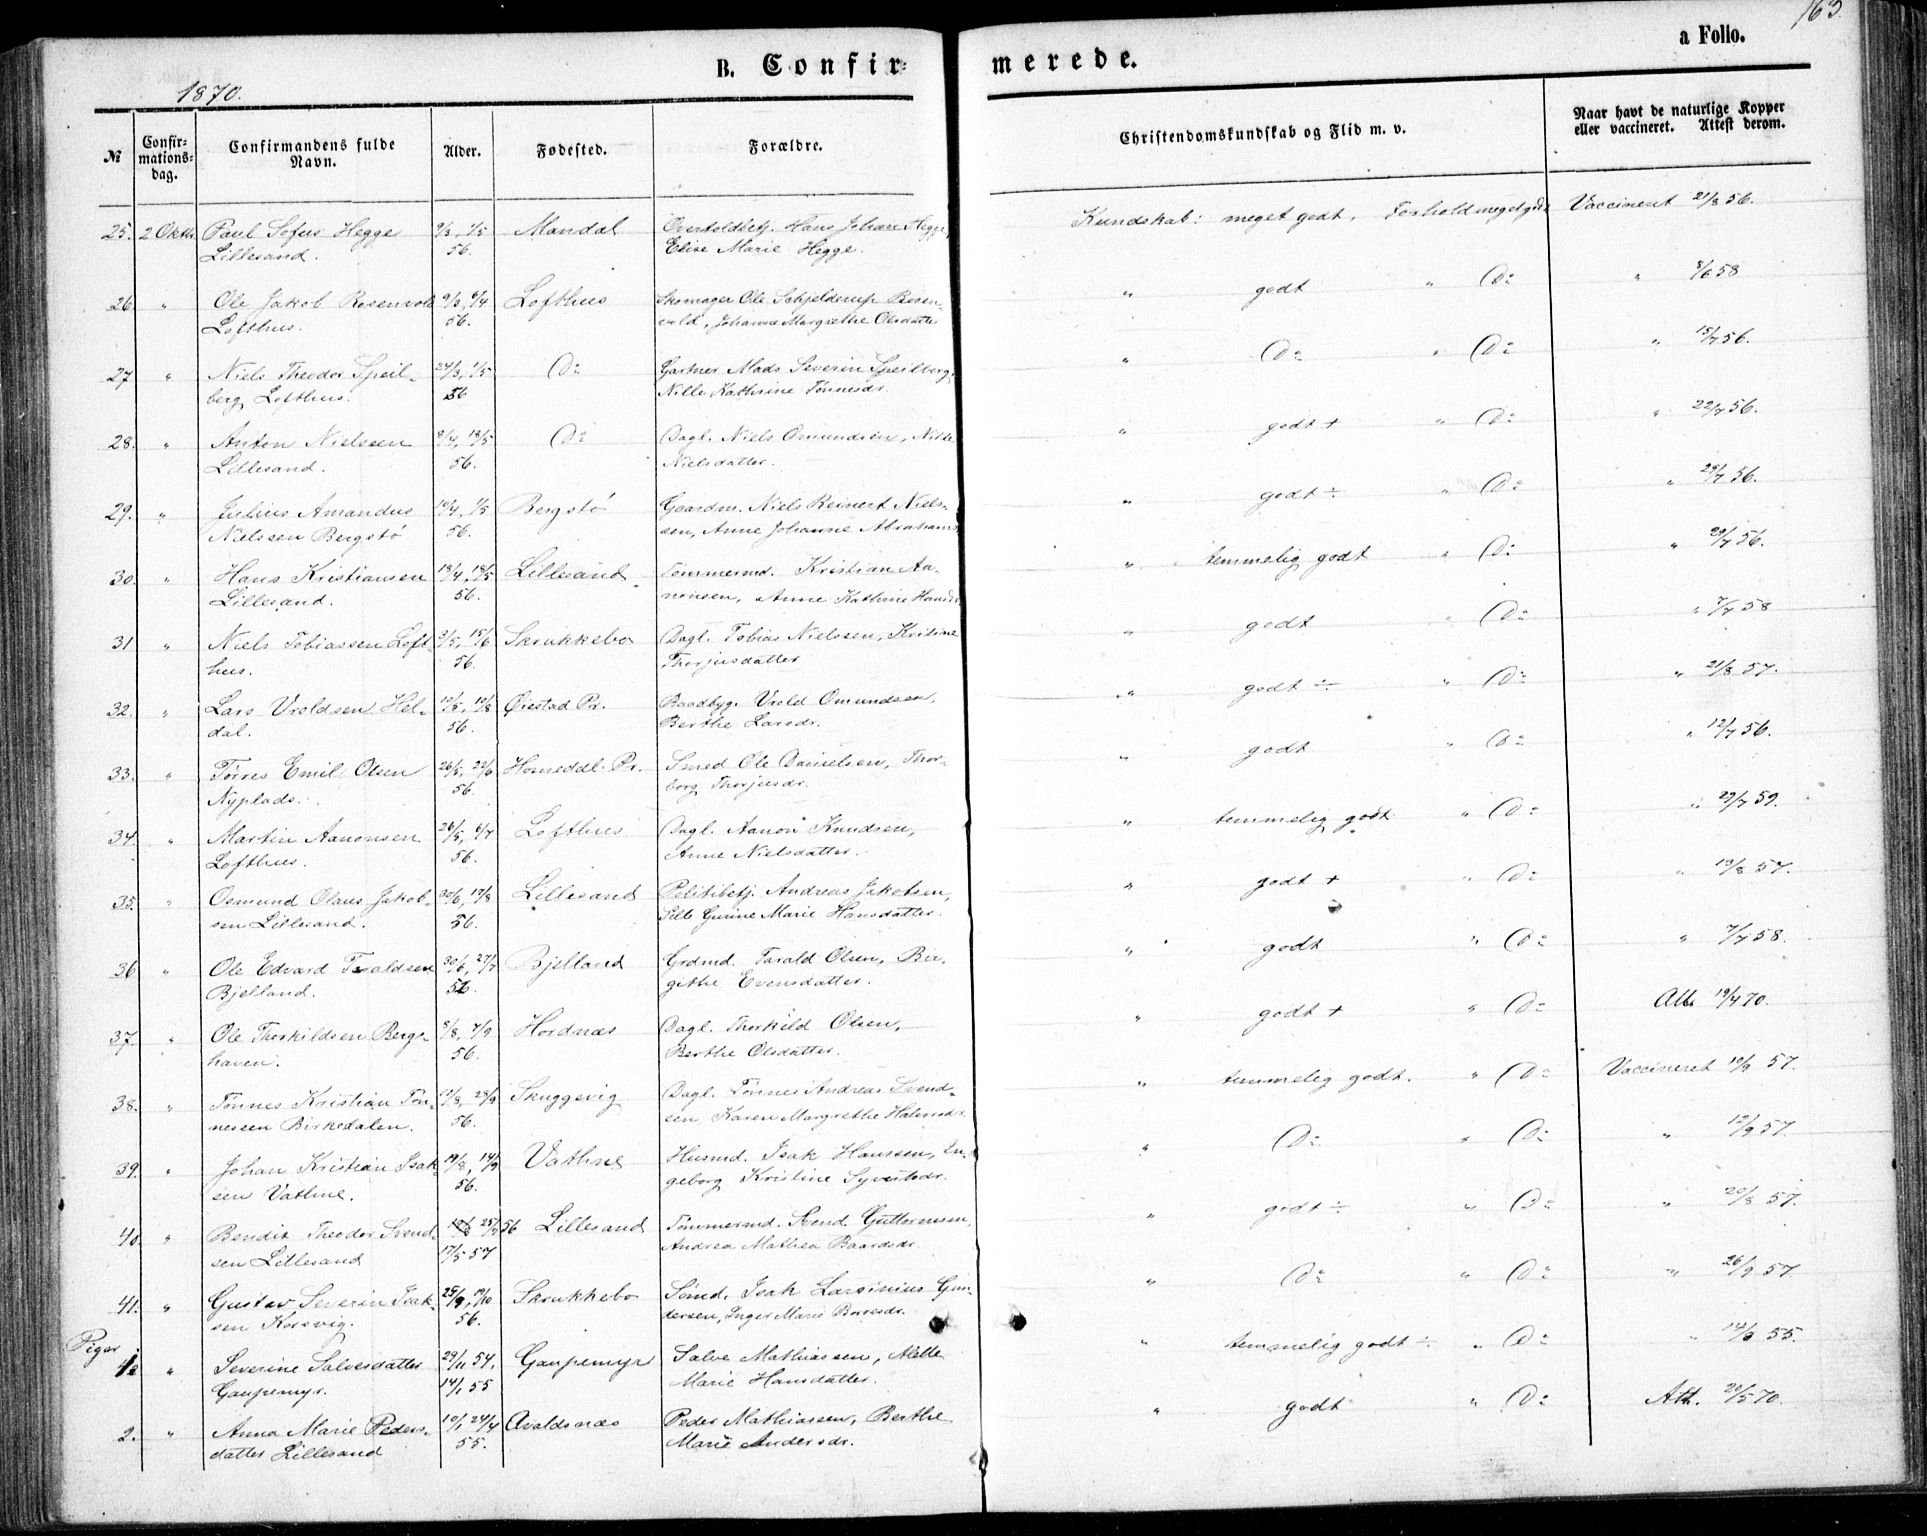 163.
B. Confir= merede. a Folio.
1870.
№ Confir=mations=dag. Confirmandens fulde Navn. Alder. Fødested. Forældre. Christendomskundskab og Flid m. v. Naar havt de naturlige Kopper eller vaccineret. Attest derom.
25. 2 Oktb. Paul Sofus Hegge 9/3, 1/5 Mandal Overtoldbetj. Hans Johan Hegge, Kundskab: meget godt, Forhold meget godt Vaccineret 21/8 56.
Lillesand. 56. Elise Marie Hegge.
26. " Ole Jakob Rosenvold 9/3, 6/4 Lofthus Skomager Ole Schjelderup Rosen- " godt " Do " 8/6 58
Lofthus. 56. vold, Johanne Margrethe Olsdatter
27 " Niels Theodor Speil- 24/3, 1/5 Do Gartner Mads Severin Speilberg, " Do " Do " 15/7 56.
berg Lofthus. 56 Nille Kathrine Tønnesdr.
28. " Anton Nielssen 8/4, 18/5 Do Dagl. Niels Omundsen, Nille " godt + " Do " 22/7 56.
Lillesand. 56. Nielsdatter.
29. " Julius Amandus 19/4, 1/5 Bergstø Gaardm. Niels Reinert Niels- " godt ÷ " Do " 29/7 56.
Nielssen Bergstø 56. sen, Anne Johanne Abrahams
30. " Hans Kristiansen 18/4, 18/5 Lillesand Tømmermd. Kristian Aa- " temmelig godt " Do " 29/7 56.
Lillesand. 56. nonsen, Anne Kathrine Hansdr.
31 " Niels Tobiassen Loft- 3/5, 15/6 Skrukkebo Dagl. Tobias Nielssen, Kristine " godt " Do " 7/7 58
hus. 56. Thorjusdatter
32. " Lars Vroldsen Hel- 19/5, 10/8 Øiestad Pr. Baadbyg. Vrold Omundsen, " godt ÷ " Do " 21/8 57.
dal. 56. Berthe Larsdr.
33. " Tørres Emil Olsen 26/5, 22/6 Homeddl. Pr. Smed Ole Danielsen, Thor- " godt " Do " 12/7 56.
Nyplads. 56. borg Thorjusdr.
34. " Martin Aanonsen 26/5, 6/7 Lofthus Dagl. Aanon Knudsen, " temmelig godt " Do " 29/7 59.
Lofthus. 56. Anne Nielsdatter.
35. " Osmund Olaus Jakob- 30/6, 17/8 Lillesand Politibetj. Andreas Jakobsen, " godt + " Do " 19/8 57.
sen Lillesand. 56. Gurine Marie Hansdatter.
36 " Ole Edvard Taraldsen 30/6, 27/7 Bjelland Grdmd. Tarald Olsen, Bir- " godt " Do " 7/7 58.
Bjelland. 56. githe Evensdatter.
37. " Ole Thorkildsen Berge- 8/8, 7/9 Hordnæs Dagl. Thorkild Olsen, " godt + " Do Att. 19/4 70.
haven. 56. Berthe Olsdatter.
38. " Tønnes Kristian Tøn- 17/8, 28/9 Skuggevig Dagl. Tønnes Andreas Svend- " temmelig godt. " Do Vaccineret 10/9 57.
nessen Birkedalen. 56. sen Karen Margrethe
39. " Johan Kristian Isak- 19/8, 14/9 Vathne Husmd. Isak Hanssen, In- " Do " Do " 12/9 57.
sen Vathne. 56. geborg Kristine
40. " Bendik Theodor Svend- 25/9 56 Lillesand Tømmermd. Svend Guttormsen, " godt ÷ " Do " 20/8 57.
sen Lillesand 17/5 57 Andrea Mathea Baardsdr.
41. " Gustav Severin Isak- 25/9, 19/10 Skrukkebo Sømd. Isak Larsinius Gun- " Do " Do " 26/9 57.
sen Korsvig. 56. dersen, Inger Marie
Piger
1 " Severine Salvesdatter 29/11 54, Gaupemyr Salve Mathiassen, Mette " temmelig godt ÷ " Do " 14/9 55.
Gaupemyr. 14/1 55 Marie Hansdatter.
2. " Anna Marie Peders- 10/1 24/4 Avaldsnæs Peder Mathiassen, Berthe " godt " Do Att. 20/5 70.
datter Lillesand 55. Marie Andersdr.